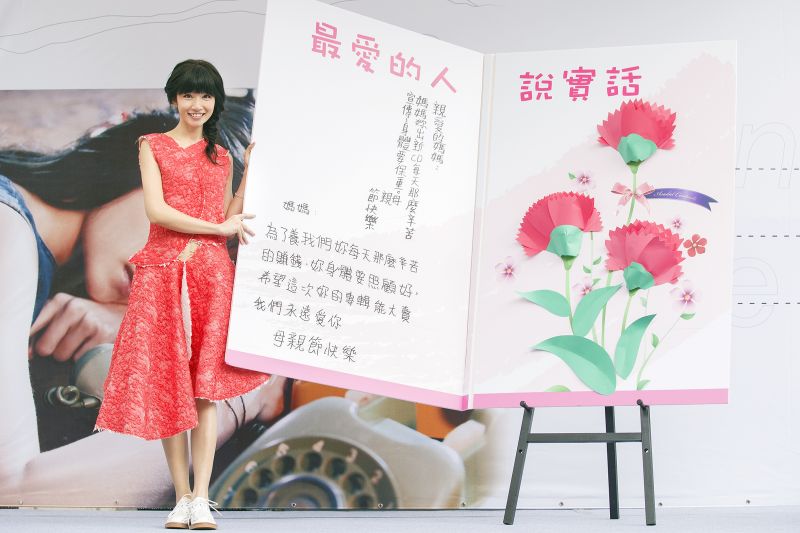 最愛的人
說實話
親愛的媽媽:
媽媽妳出新CD每天那麼辛苦
宣傳~身體要保重。母
親
節
快
樂
媽媽:
為了養我們妳每天那麼辛苦
的賺錢,妳身體要照顧好,
希望這次妳的專輯能大賣
我們永遠愛你
母親節快樂